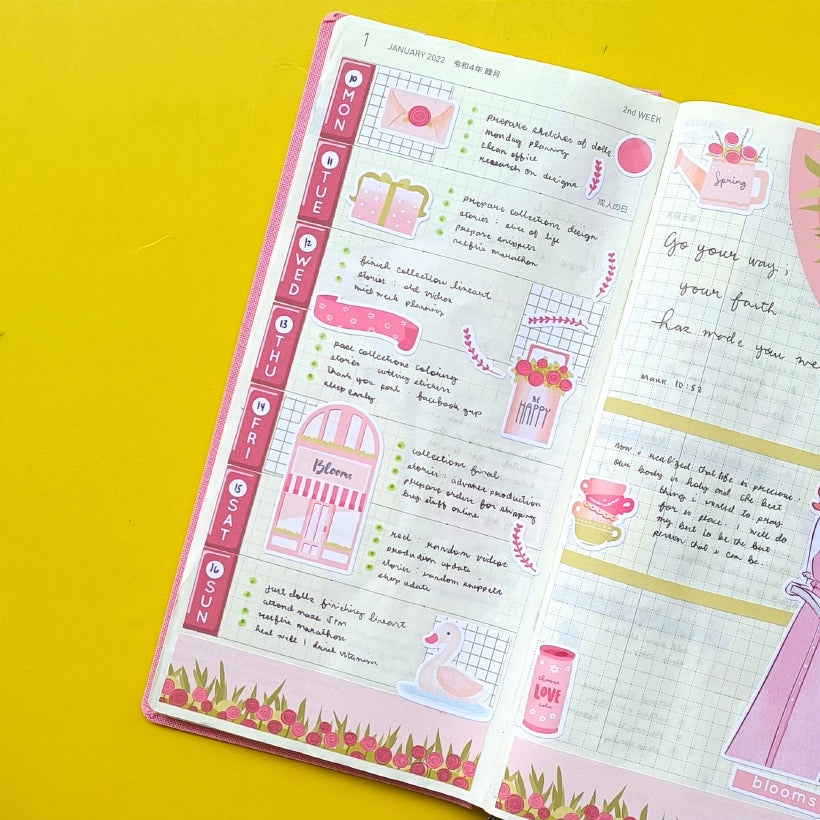 1 JANUARY 2022 令和4年 睦月
2nd WEEK
10 MON
prepare sketches of dolls
monday planning
clean office
research on designs
成人の日
11 TUE
prepare collections design
stories : slice of life
prepare snippets
netflix marathon
12 WED
finish collection lineart
stories : old videos
mid week planning
13 THU
pace collections coloring
stories : cutting stickers
thank you post : facebook grp
sleep early
BE
HAPPY
14 FRI
Blooms
collections final
stories : advance production
prepare orders for shipping
buy stuff online
15 SAT
reel : random videos
production update
stories : random snippets
shop update
16 SUN
just dolls finishing lineart
attend mass 5pm
netflix marathon
heal well ; drink vitamins
Spring
Go your way,
your faith
has made you we
Mark 10:52
now i realized that life is precious.
our body is holy and the best
thing i wanted to pray
for is peace. i will do
my best to be the best
person that i can be.
choose
LOVE
blooms